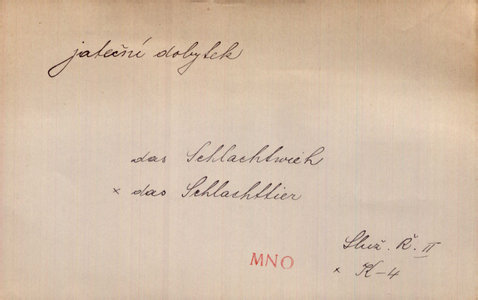 jateční dobytek
das Schlachtvieh
× das Schlachttier
Služ. Ř. II
MNO
× K-4